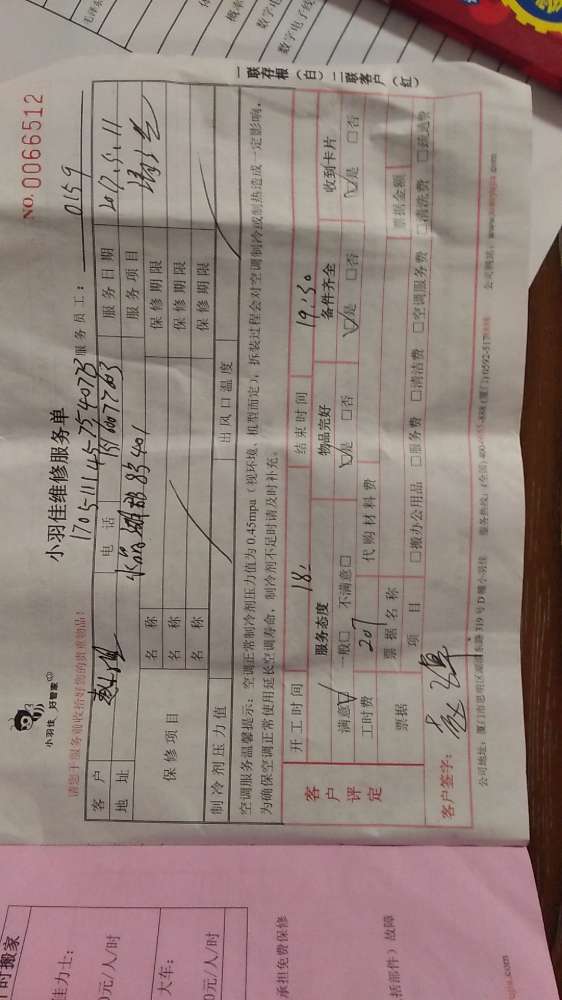 小羽佳 好管家
小羽佳维修服务单
NO.0066512
请您于服务前收拾好您的贵重物品!
1705111145-7540773
服务员工: 0159
客户
电话
服务日期 2017.5.11
地址
83401
服务项目
保修项目
名称
保修期限
名称
保修期限
名称
保修期限
制冷剂压力值
出风口温度
空调服务温馨提示: 空调正常制冷剂压力值为0.45mpa(视环境、机型而定), 拆装过程会对空调制冷或制热造成一定影响,
为确保空调正常使用延长空调寿命, 制冷剂不足时请及时补充。
客户评定
开工时间 18:
结束时间 19:30
服务态度
物品完好
备件齐全
收到卡片
满意 一般□ 不满意□
是 □否
是 □否
是 □否
工时费 207
代购材料费
票据
票据名称
票据金额
项目
□搬办公用品 □服务费 □清洁费 □空调服务费 □清洗费 □疏通费
客户签字:
一联存根(白) 二联客户(红)
公司地址: 厦门市思明区湖滨东路319号D幢小羽佳
服务热线: (全国)400-
(厦门)0592-517
公司网站:
时搬家
佳力士:
0元/人/时
大车:
0元/人/时
承担免费保修
括部件)故障
毛泽东
数字电子线